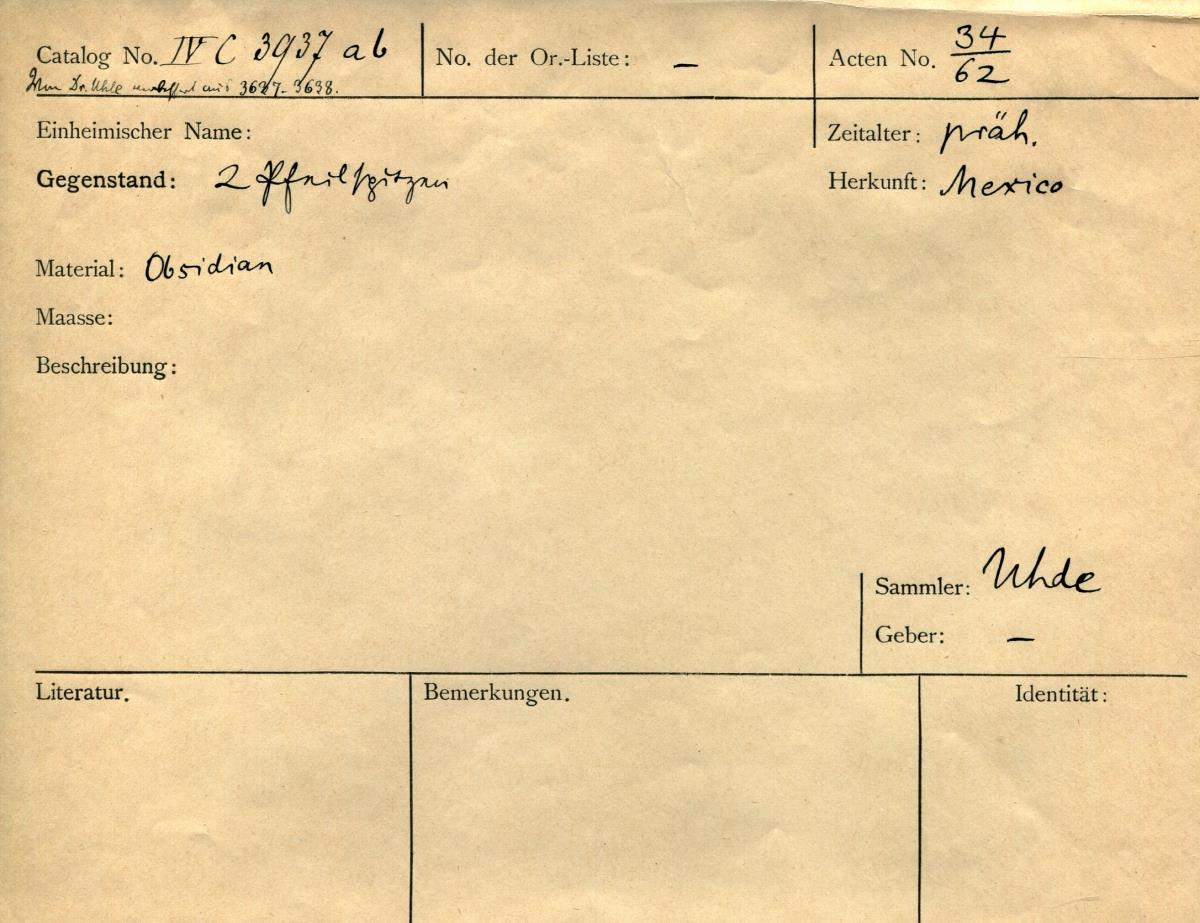 Catalog No. IV C 3937 ab
No. der Or.-Liste: —
Acten No. 34/62
Von Dr. Uhle aus 3627-3638.
Einheimischer Name:
Zeitalter: präh.
Gegenstand: 2 Pfeilspitzen
Herkunft: Mexico
Material: Obsidian
Maasse:
Beschreibung:
Sammler: Uhde
Geber: —
Literatur.
Bemerkungen.
Identität: